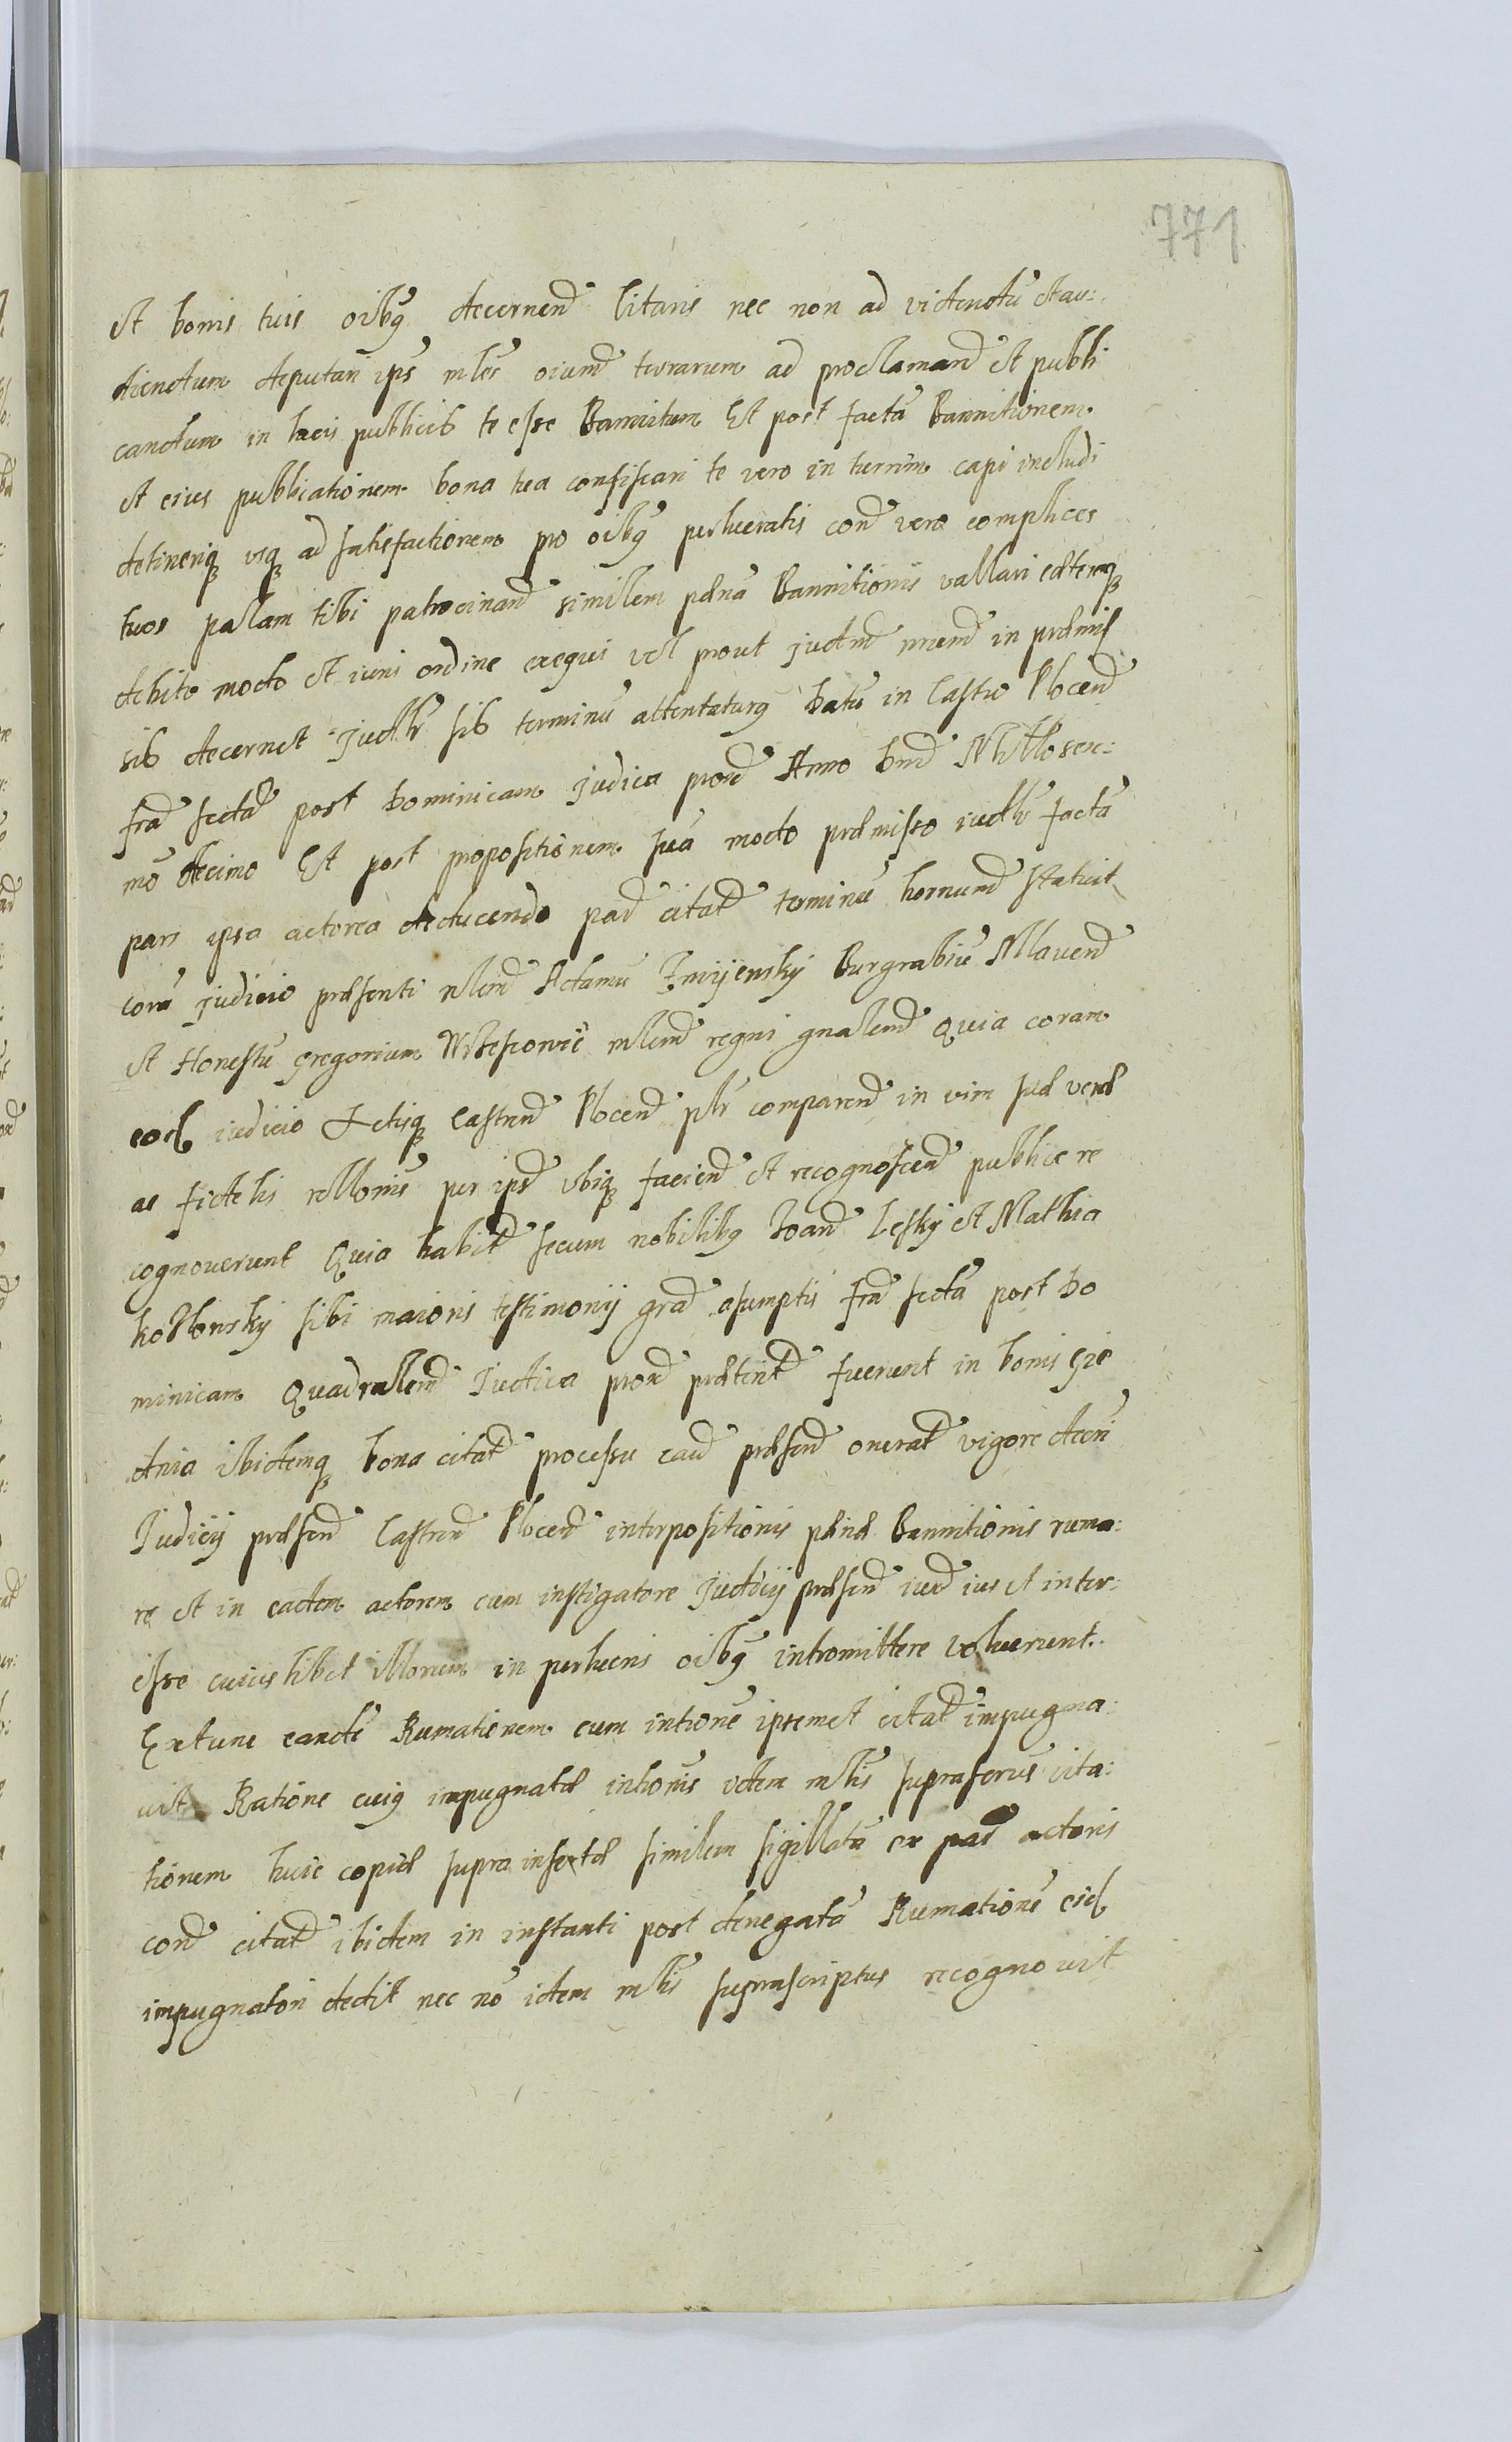 771
et bonis tuis oībȝ decernend̃ litaris nec non ad videndū et au:
diendum deputari ipš mlēs oiumd̃ terrarum ad proclamand̃ et publi
candum in locis publicis te esse Bannitum Et post factā Bannitionem
et eius publicationem bona tua confiscari te vero in turrim capi includi
detineriqȝ vsqȝ ad satisfactionem pro oībȝ perlucratis cond̃ vero complices
tuos palam tibi patrocinand̃ similem pænā Bannitionis vallari edtemqȝ
debito modo et iuris ordine exequi vel prout jud̃ rnemd̃ in præmiſ
sis decernet Judlr̃ sis terminū attentaturȝ Datū in Castro Plocen̄
frā sectā post Dominicam Judica prox̃ Anno Dnĩ Mĩllo sex:
mō decimo Et post propositionem suā modo præmisso iudlr̃ factā
pars ipsa actorea deducendo pad̃ citat̃ terminū hornumd̃ statuit
corā judicio præsenti mlem̃ Adamū Zmijewskij Burgrabiū Mlauen̄
et Honestū gregorium Wbesiowic mlem̃ regni gnalem̃ Quia coram
eod̃ iudicio Actisqȝ Castren̄ Plocen̄ plr̃ comparen̄ in vim suæ veræ
ac fidelis rellonis̃ per ips̃ vbiqȝ faciend̃ et recognoscend̃ publice re
cognoverunt Quia habit̃ secum nobilibȝ Joan̄ Leskij et Mathia
koſſonskij sibi maioris testimonij grã asumptis frā sectā post Do
minicam Quadralem̃ Judica prox̃ prætirit̃ fuerunt in bonis Gie
dnia ibidemqȝ bona citat̃ processu caũ præsen̄ onerat̃ vigore decrĩ
Judicij præsen̄ Castren̄ Plocen̄ interpositionis pænæ Bannitionis ruma:
re et in eadem actorem cum instigatore Judicij præsen̄ iuxt̃ ius et inter:
esse cuiuslibet illorum in perlucris oībȝ intromittere voluerunt.
Extunc eandē Rumationem cum intionē ipsemet citat̃ impugna:
uit Ratione cuiȝ impugnatæ intionis idem mlis̃ suprascrus̃ cita:
tionem huic copiæ supra insertæ similem sigillatā ex pad̃ actoris
cond̃ citat̃ ibidem in instanti post denegatā Rumationē eid̃
impugnatori dedit nec nō idem mlis̃ suprascriptus recognouit